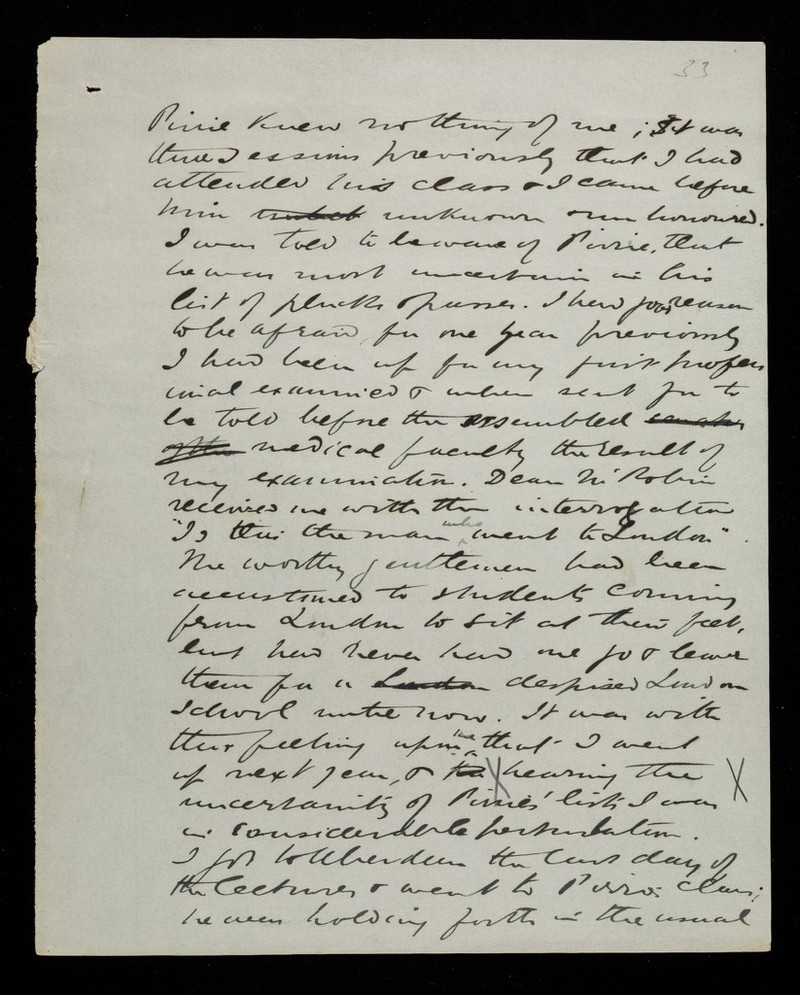 33
Pirrie knew nothing of me; It was
three sessions previously that I had
attended his class & I came before
him unknown & un honoured.
I was told to beware of Pirrie, that
he was most uncertain in his
list of plucks & passes. I had good reason
to be afraid, for one year previously
I had been up for my first profess
ional examined & when sent for to
be told before the assembled senate
of the medical faculty the result of
my examination. Dean McRobin
received me with the interrogation
"Is this the man who went to London".
The worthy gentlemen had been
accustomed to students coming
from London to sit at their feet,
but had never had one go & leave
them for a London despised London
School until now. It was with
this feeling upon me that I went
up next year, & the hearing the X
uncertainty of Pirries' list I was
in considerable perturbation.
I got to Aberdeen the last day of
the lectures & went to Pirries class;
he was holding forth in the usual